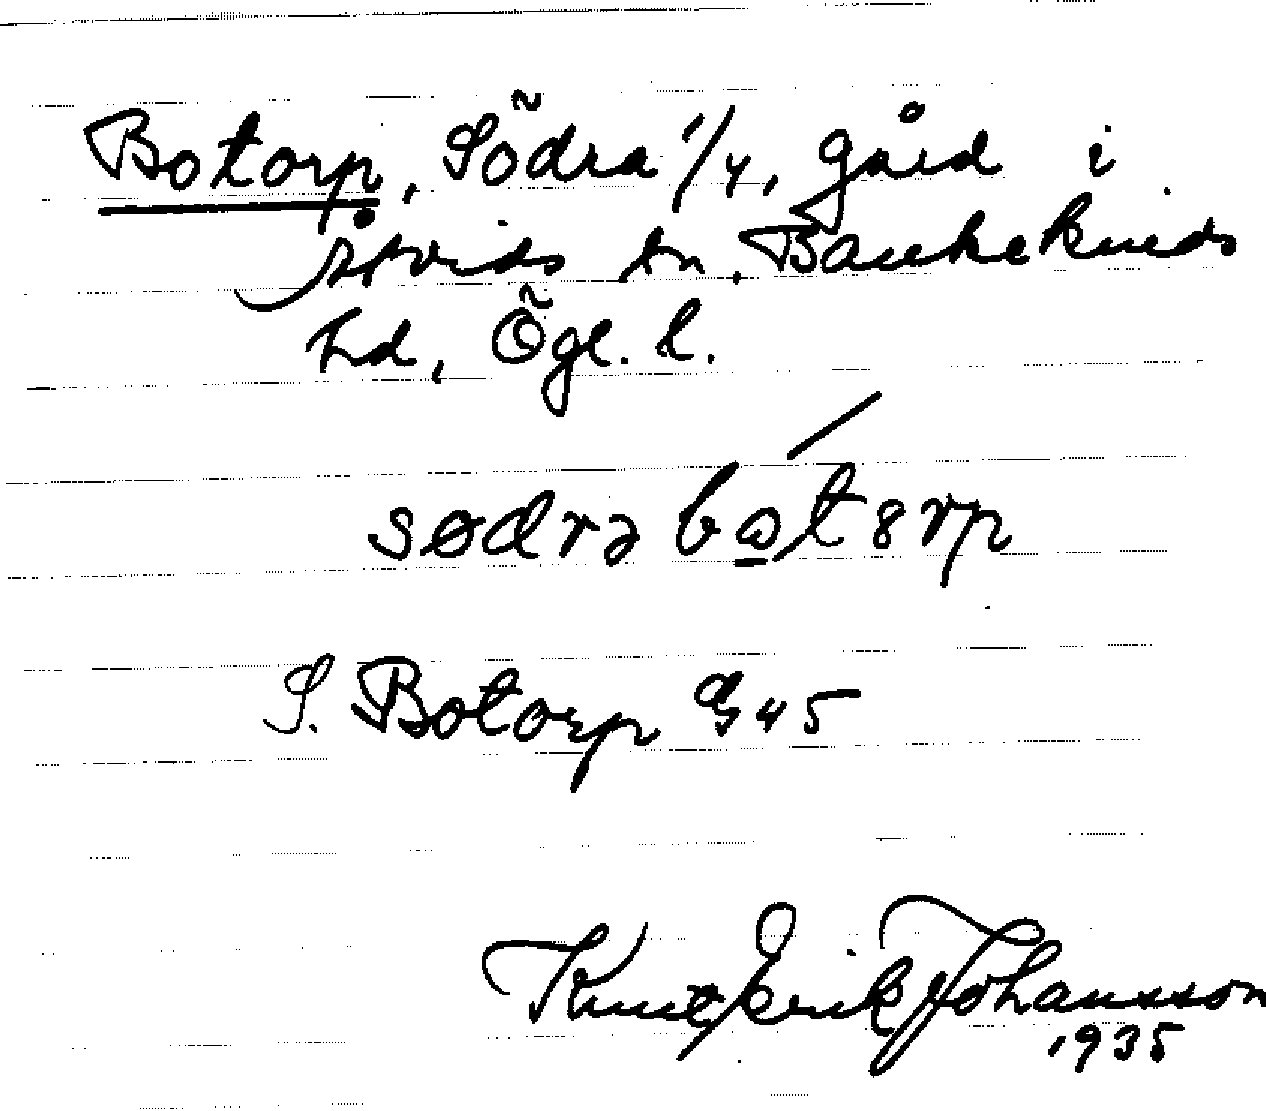 Botorp, Södra 1/4, gård i
Åtvids sn, Bankekinds
hd, Ögl. l.
södra
S. Botorp G 45
Knut Erik Johansson
1935